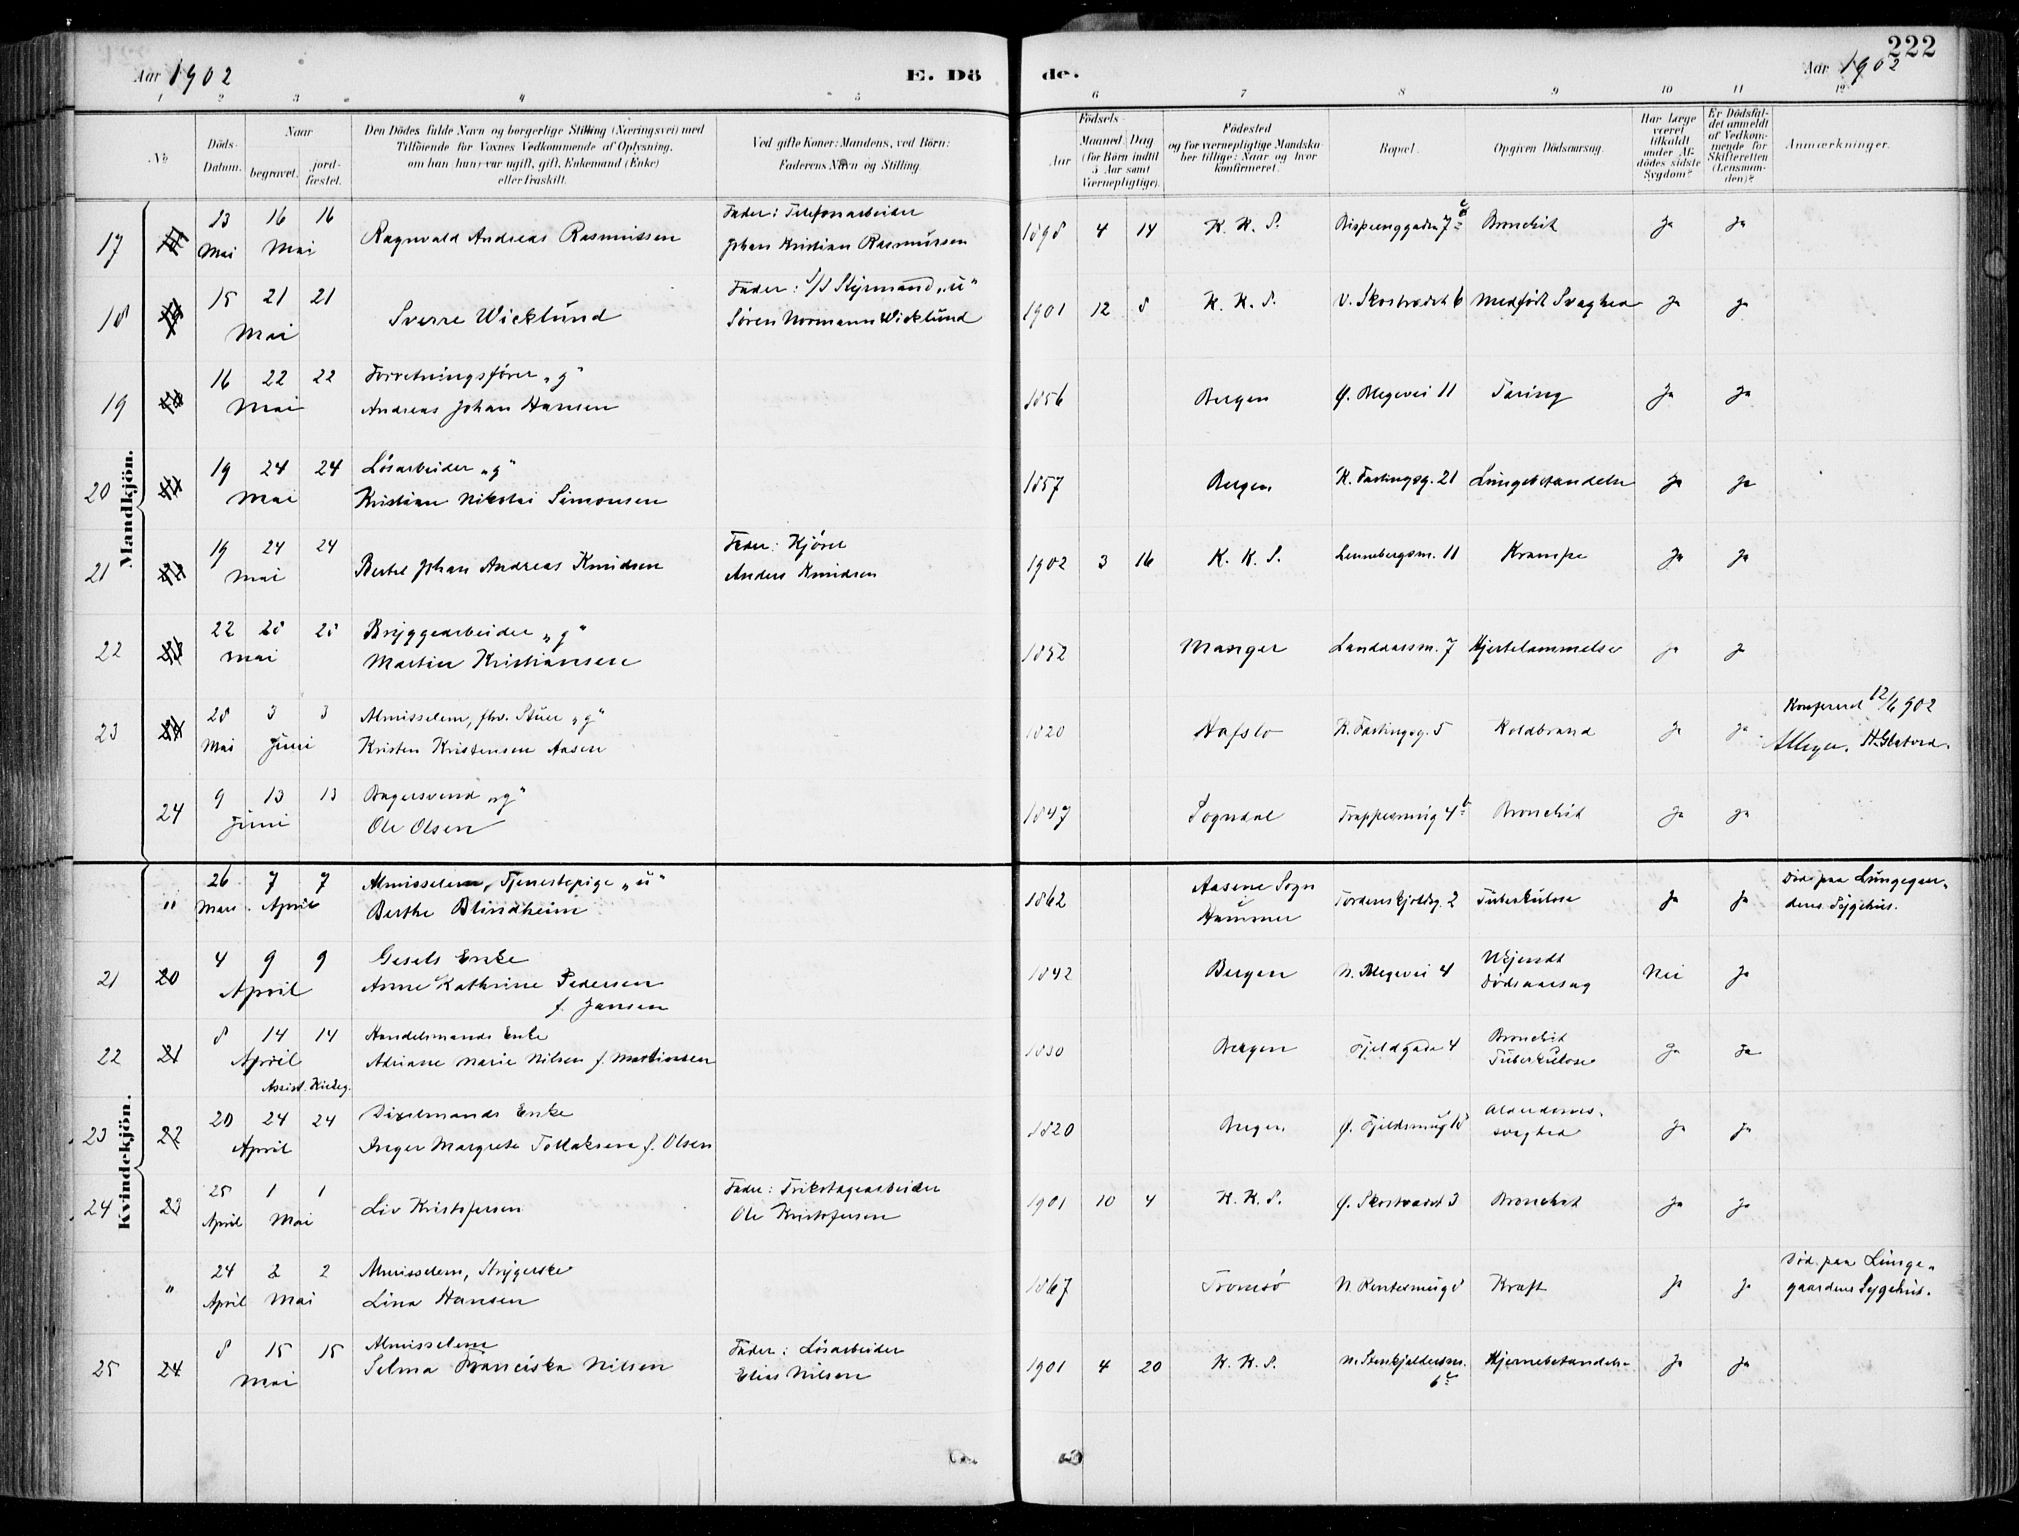 222
Aar 1902 E. Dö de. Aar 1902
1 2 3 4 5 6 7 8 9 10 11 12
No
Döds-Datum.
Naar
begravet.
jord-fæstet.
Den Dödes fulde Navn og borgerlige Stilling (Næringsvei) med
Tilföiende for Voxnes Vedkommende af Oplysning,
om han (hun) var ugift, gift, Enkemand (Enke)
eller fraskilt.
Ved gifte Koner: Mandens, ved Börn:
Faderens Navn og Stilling.
Födsels-
Aar
Maaned Dag
(for Börn indtil
5 Aar samt
Værnepligtige).
Födested
og for værnepligtige Mandska-
ber tillige: Naar og hvor
konfirmeret.
Bopæl.
Opgiven Dödsaarsag.
Har Læge
været
tilkaldt
under Af-
dödes sidste
Sygdom?
Er Dödsfal-
det anmeldt
af Vedkom-
mende for
Skifteretten
(Lensman-
den)?
Anmærkninger.
Mandkjön.
17 13 Mai 16 16 Mai Ragnvald Andreas Rasmussen Fader: Telefonarbeider
Johan Kristian Rasmussen 1898 4 14 K. K. S. Bispenggaden 7 Bronchit Ja Ja
18 15 21 21 Mai Sverre Wicklund Fader: S/S Styrmand „u“
Sören Normann Wicklund 1901 12 8 K. K. S. V. Skostrædet 6 Medfödt Svaghed Ja Ja
19 16 22 22 Mai Forretningsförer „g“
Andreas Johan Hansen 1856 Bergen Ø. Blegevei 11 Tæring Ja Ja
20 19 24 24 Mai Lösarbeider „g“
Kristian Nikolai Simonsen 1857 Bergen K. Fastingsg. 21 Lungebetændelse Ja Ja
21 19 24 24 Mai Bertel Johan Andreas Knudsen Fader: Kjörer
Anders Knudsen 1902 3 16 K. K. S. 11 Krampe Ja Ja
22 22 28 28 Mai Bryggearbeider „g“
Martin Kristiansen 1852 Manger Landaassm. 7 Hjertelammelse Ja Ja
23 28 Mai 3 3 Juni Almisselem, fhv. Stuer „g“
Kristen Kristensen Aasen 1820 Hafslo K. Fastingsg. 5 Koldbrand Ja Ja Konfereret 12/6 902
24 9 13 13 Juni Bagersvend „g“
Ole Olsen 1847 Sogndal Trappesmug 4 b Bronchit Ja Ja
Kvindekjön.
" 26 Mars 7 7 April Almisselem, Tjenestepige „u“
Berthe Blindheim 1862 Aasene Sogn
Hammer Tordenskjoldsg. 2 Tuberkulose Ja Ja Död paa Lungegaar-
dens Sygehus.
21 20 4 9 9 April Gesels Enke
Anne Kathrine Pedersen
f. Jansen 1842 Bergen N. Blegevei 4 Ukjendt
Dödsaarsag Nei Ja
22 21 8 14 14 April Handelsmands Enke
Adriane Marie Nilsen f. Martinsen 1830 Bergen Fjeldgade 4 Bronchit
Tuberkulose Ja Ja
Assist. Kirkeg.
23 22 20 24 24 April Enke
Inger Margrete Tollaksen f. Olsen 1820 Bergen Ø. Fjeldsmug 18 Alderdoms-
svaghed Ja Ja
24 23 25 April 1 1 Mai Liv Kristofersen Fader: Trikotagearbeider
Ole Kristofersen 1901 10 4 K. K. S. Ø. Skostrædet 3 Bronchit Ja Ja
" 24 April 2 2 Mai Almisselem, Strygerske
Lina Hansen 1867 Tromsö Kræft Ja Ja Död paa Lunge-
gaardens Sygehus.
25 24 8 15 15 Mai Almisselem
Selma Franciska Nilsen Fader: Lösarbeider
Elias Nilsen 1901 4 20 K. K. S. 6 Hjernebetændelse Ja Ja